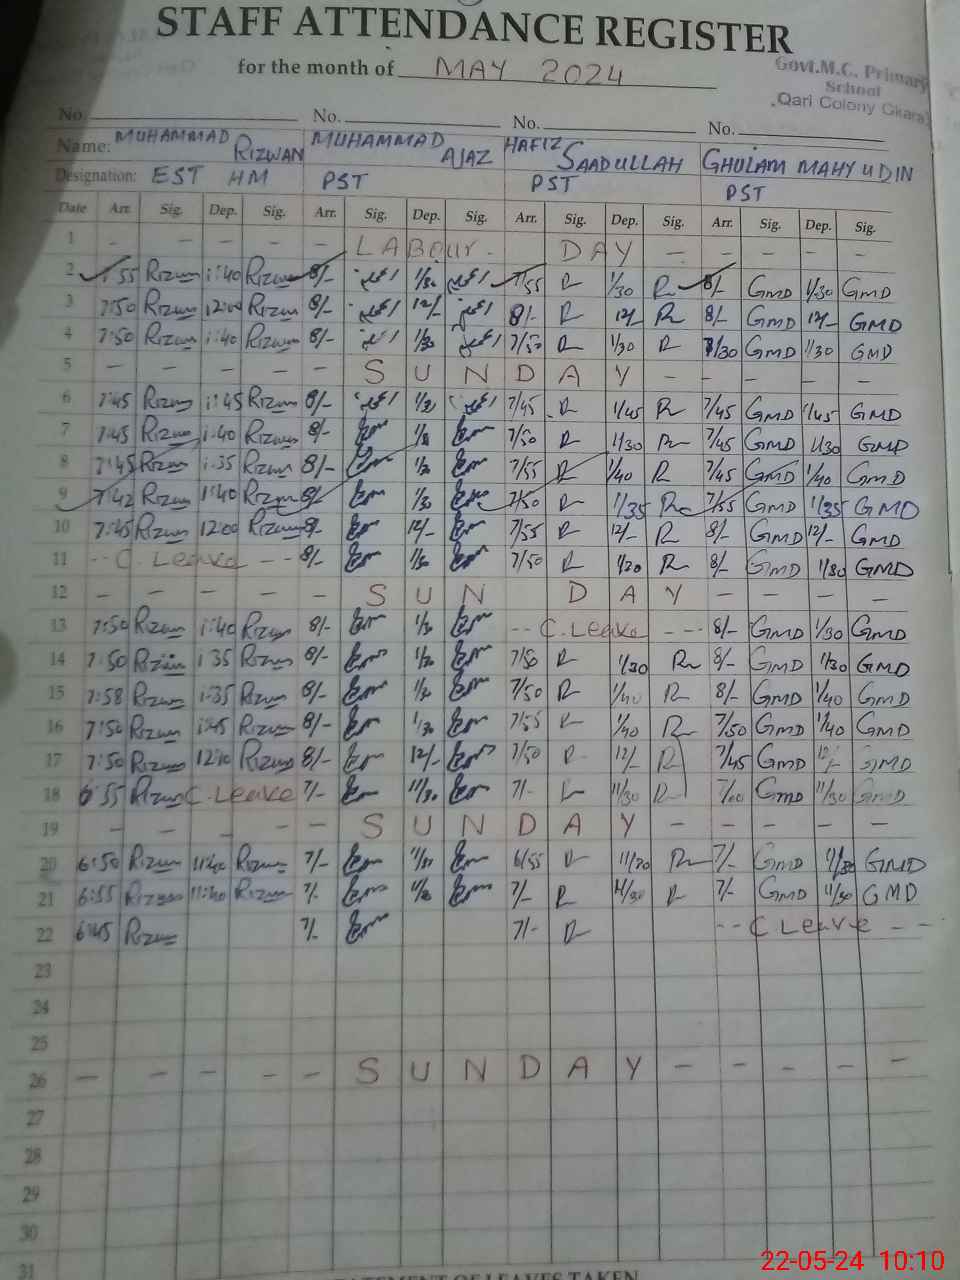 STAFF ATTENDANCE REGISTER
for the month of MAY 2024
Govt.M.C. Primary
School
Qari Colony Okara
No. No. No. No.
Name: MUHAMMAD RIZWAN MUHAMMAD AJAZ HAFIZ SAADULLAH GHULAM MAHY UDIN
Designation: EST HM PST PST PST
Date Arr. Sig. Dep. Sig. Arr. Sig. Dep. Sig. Arr. Sig. Dep. Sig. Arr. Sig. Dep. Sig.
1 - - - - - LABOUR - DAY - - - - -
2 7:55 Rizwan 1:40 Rizwan 8/- 1/30 7/55 R 1/30 R 8/- GMD 1/30 GMD
3 7:50 Rizwan 12:00 Rizwan 8/- 12/- 8/- R 12/- R 8/- GMD 12/- GMD
4 7:50 Rizwan 1:40 Rizwan 8/- 1/30 7/50 R 1/30 R 7/30 GMD 1/30 GMD
5 - - - - - SUNDAY - - - - -
6 7:45 Rizwan 1:45 Rizwan 8/- 7/45 R 1/45 R 7/45 GMD 1/45 GMD
7 7:45 Rizwan 1:40 Rizwan 8/- 7/50 R 1/30 R 7/45 GMD 1/30 GMD
8 7:45 Rizwan 1:35 Rizwan 8/- 7/55 R 1/40 R 7/45 GMD 1/40 GMD
9 7:42 Rizwan 1:40 Rizwan 8/- 1/30 7/50 R 1/35 R 7/55 GMD 1/35 GMD
10 7:45 Rizwan 12:00 Rizwan 8/- 12/- 7/55 R 12/- R 8/- GMD 12/- GMD
11 -- C. Leave -- 8/- 1/30 7/50 R 1/20 R 8/- GMD 1/30 GMD
12 - - - - - SUN DAY - - - -
13 7:50 Rizwan 1:40 Rizwan 8/- 1/30 -- C. Leave --- 8/- GMD 1/30 GMD
14 7:50 Rizwan 1:35 Rizwan 8/- 7/50 R 1/30 R 8/- GMD 1/30 GMD
15 7:58 Rizwan 1:35 Rizwan 8/- 7/50 R 1/40 R 8/- GMD 1/40 GMD
16 7:50 Rizwan 1:45 Rizwan 8/- 1/30 7/55 R 1/40 R 7/50 GMD 1/40 GMD
17 7:50 Rizwan 12:10 Rizwan 8/- 12/- 7/50 R 12/- R 7/45 GMD 12/- GMD
18 6:55 Rizwan C. Leave 7/- 11/30 7/- 11/30 R 7/00 GMD 11/30 GMD
19 - - - - - SUNDAY - - - - -
20 6:50 Rizwan 11:40 Rizwan 7/- 6/55 R 11/30 R 7/- GMD 11/30 GMD
21 6:55 Rizwan 11:40 Rizwan 7/- 7/- R 11/30 R 7/- GMD 11/30 GMD
22 6:45 Rizwan 7/- 7/- R -- C Leave --
23
24
25
26 - - - - - SUNDAY - - - - -
27
28
29
30
31
STATEMENT OF LEAVES TAKEN
22-05-24 10:10